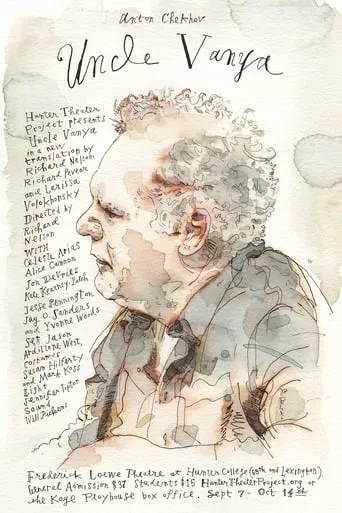 Anton Chekhov
Uncle Vanya
Hunter Theater
Project presents
Uncle Vanya
in a new
translation by
Richard Nelson,
Richard Pevear
and Larissa
Volokhonsky
Directed by
Richard
Nelson
WITH
Celeste Arias
Alice Cannon
Jon DeVries
Kate Kearney-Patch
Jesse Pennington
Jay O. Sanders
and Yvonne Woods
Set Jason
Ardizzone-West,
Costumes
Susan Hilferty
and Mark Koss
Light
Jennifer Tipton
Sound
Will Pickens
Frederick Loewe Theatre at Hunter College (68th and Lexington),
General Admission $37 Students $15 HunterTheaterProject.org or
the Kaye Playhouse box office. Sept 7 - Oct 14th